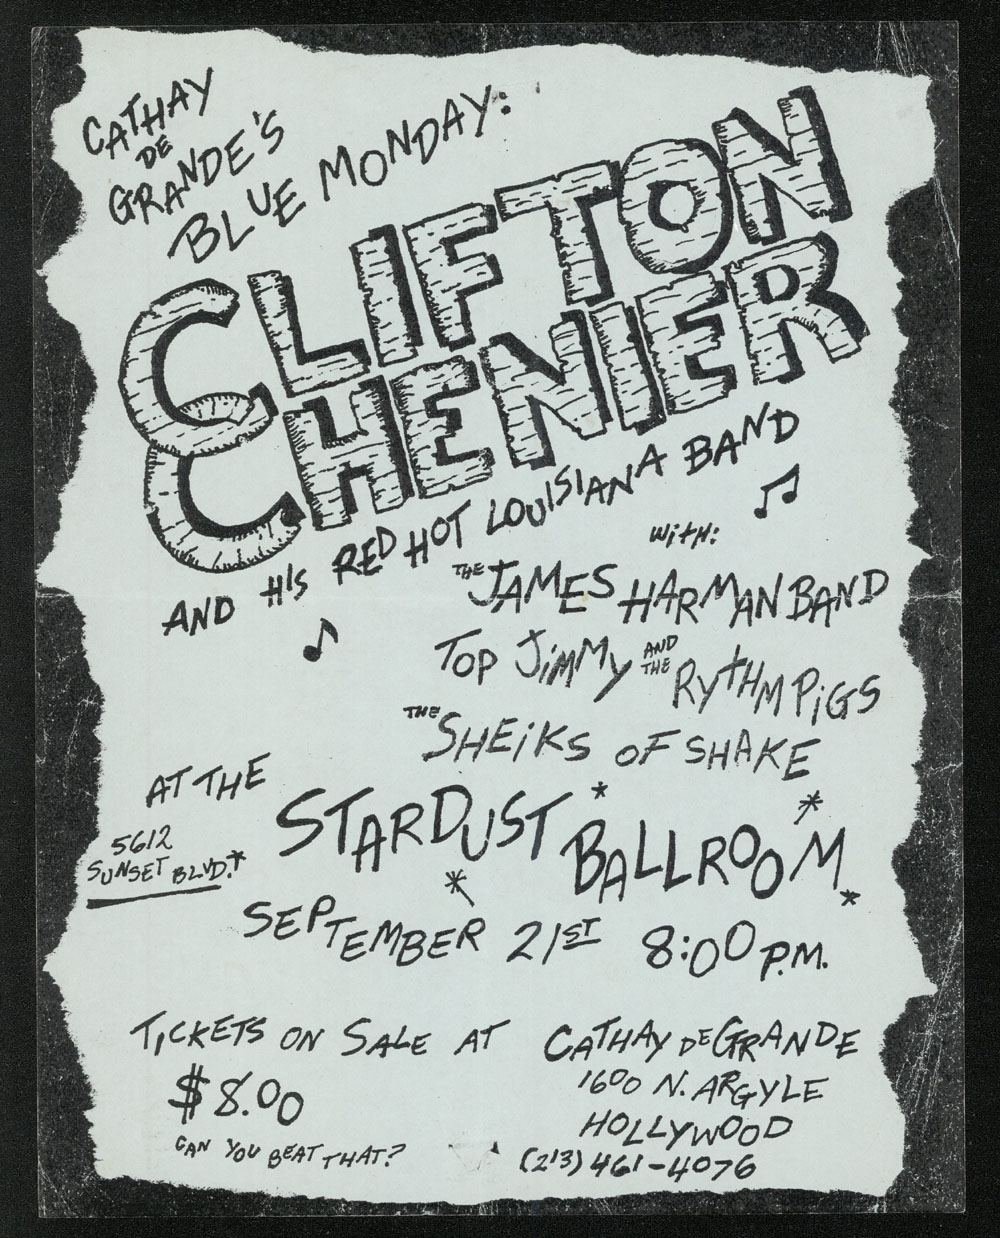 CATHAY
DE
GRANDE'S
BLUE MONDAY:
CLIFTON
CHENIER
AND HIS RED HOT LOUISIANA BAND
WITH:
THE JAMES HARMAN BAND
TOP JIMMY AND THE RYTHM PIGS
THE SHEIKS OF SHAKE
AT THE
STARDUST BALLROOM
5612
SUNSET BLVD.*
SEPTEMBER 21ST 8:00 P.M.
TICKETS ON SALE AT CATHAY DE GRANDE
1600 N. ARGYLE
HOLLYWOOD
(213) 461-4076
$8.00
CAN YOU BEAT THAT?